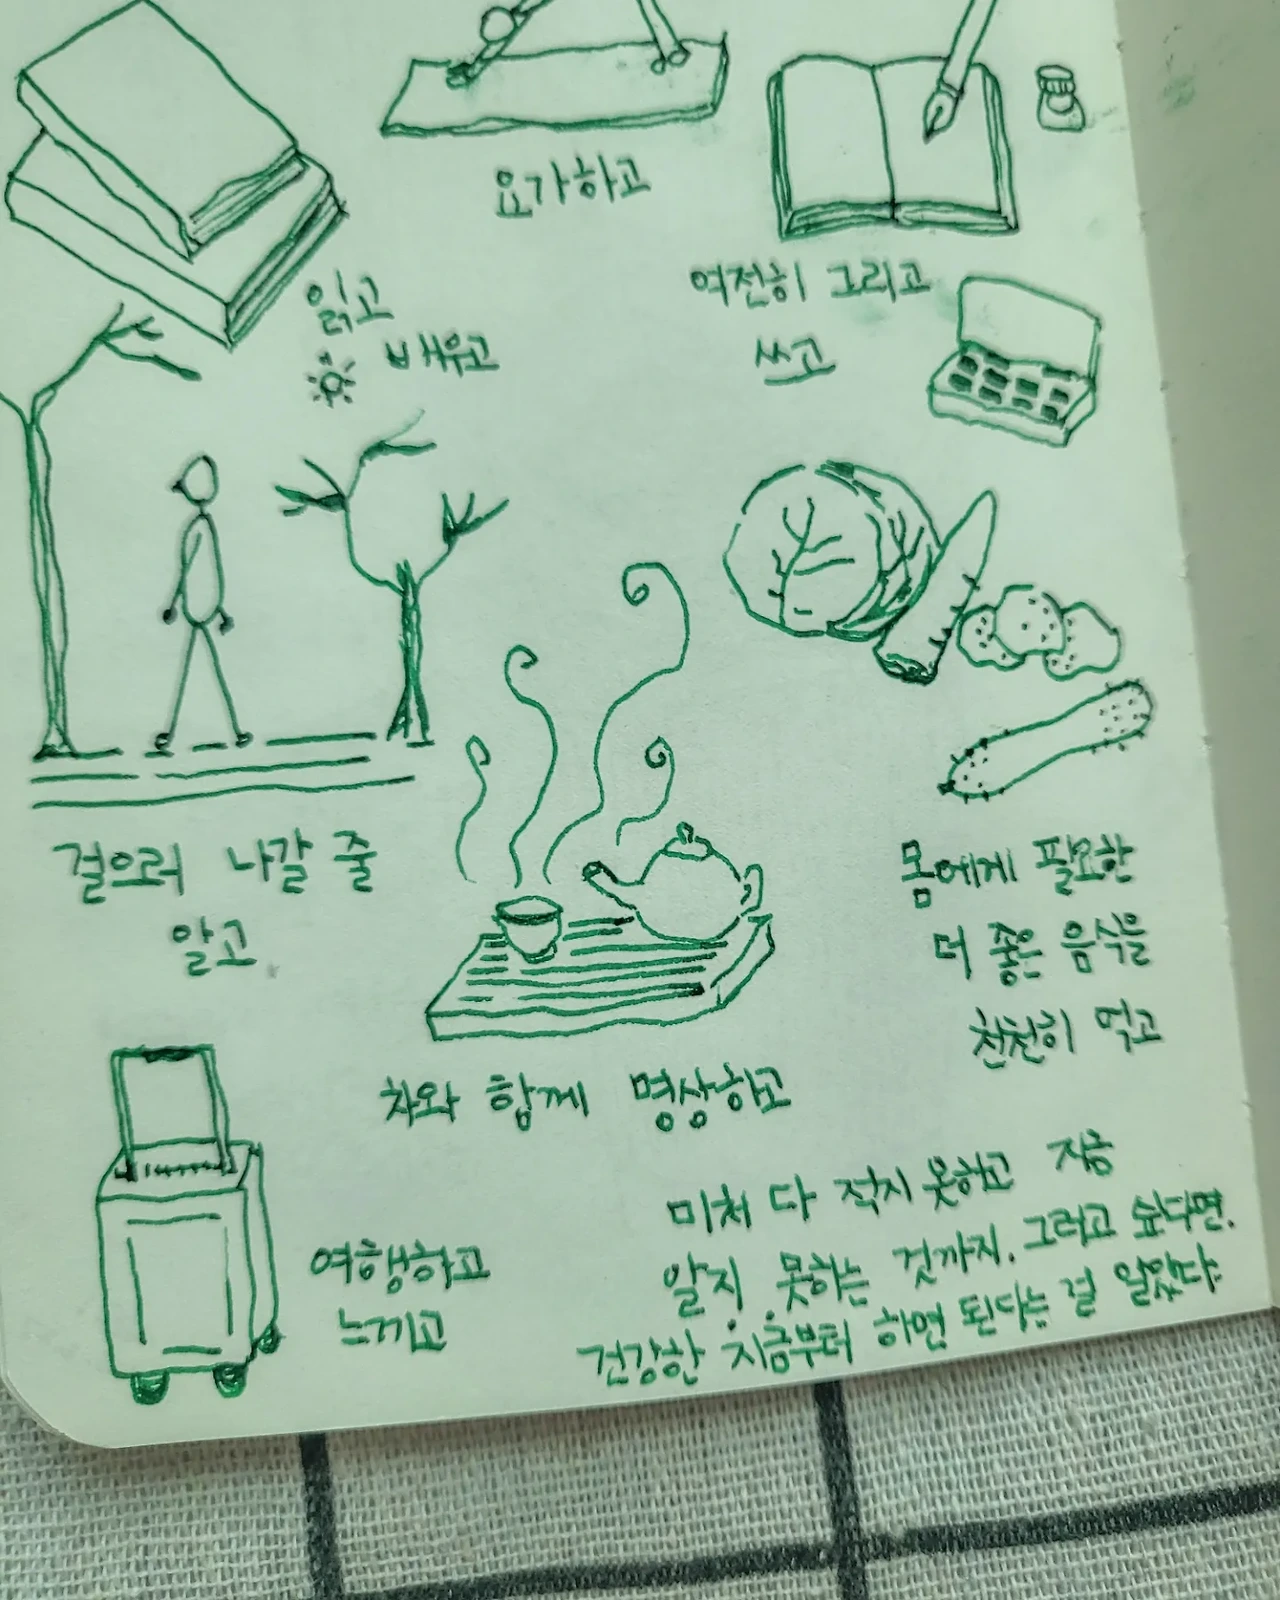 요가하고
읽고
배우고
여전히 그리고
쓰고
걸으러 나갈 줄
알고
몸에게 필요한
더 좋은 음식을
천천히 먹고
차와 함께 명상하고
여행하고
느끼고
미처 다 적지 못하고 지금
알지 못하는 것까지. 그러고 싶다면.
건강한 지금부터 하면 된다는 걸 알았다.